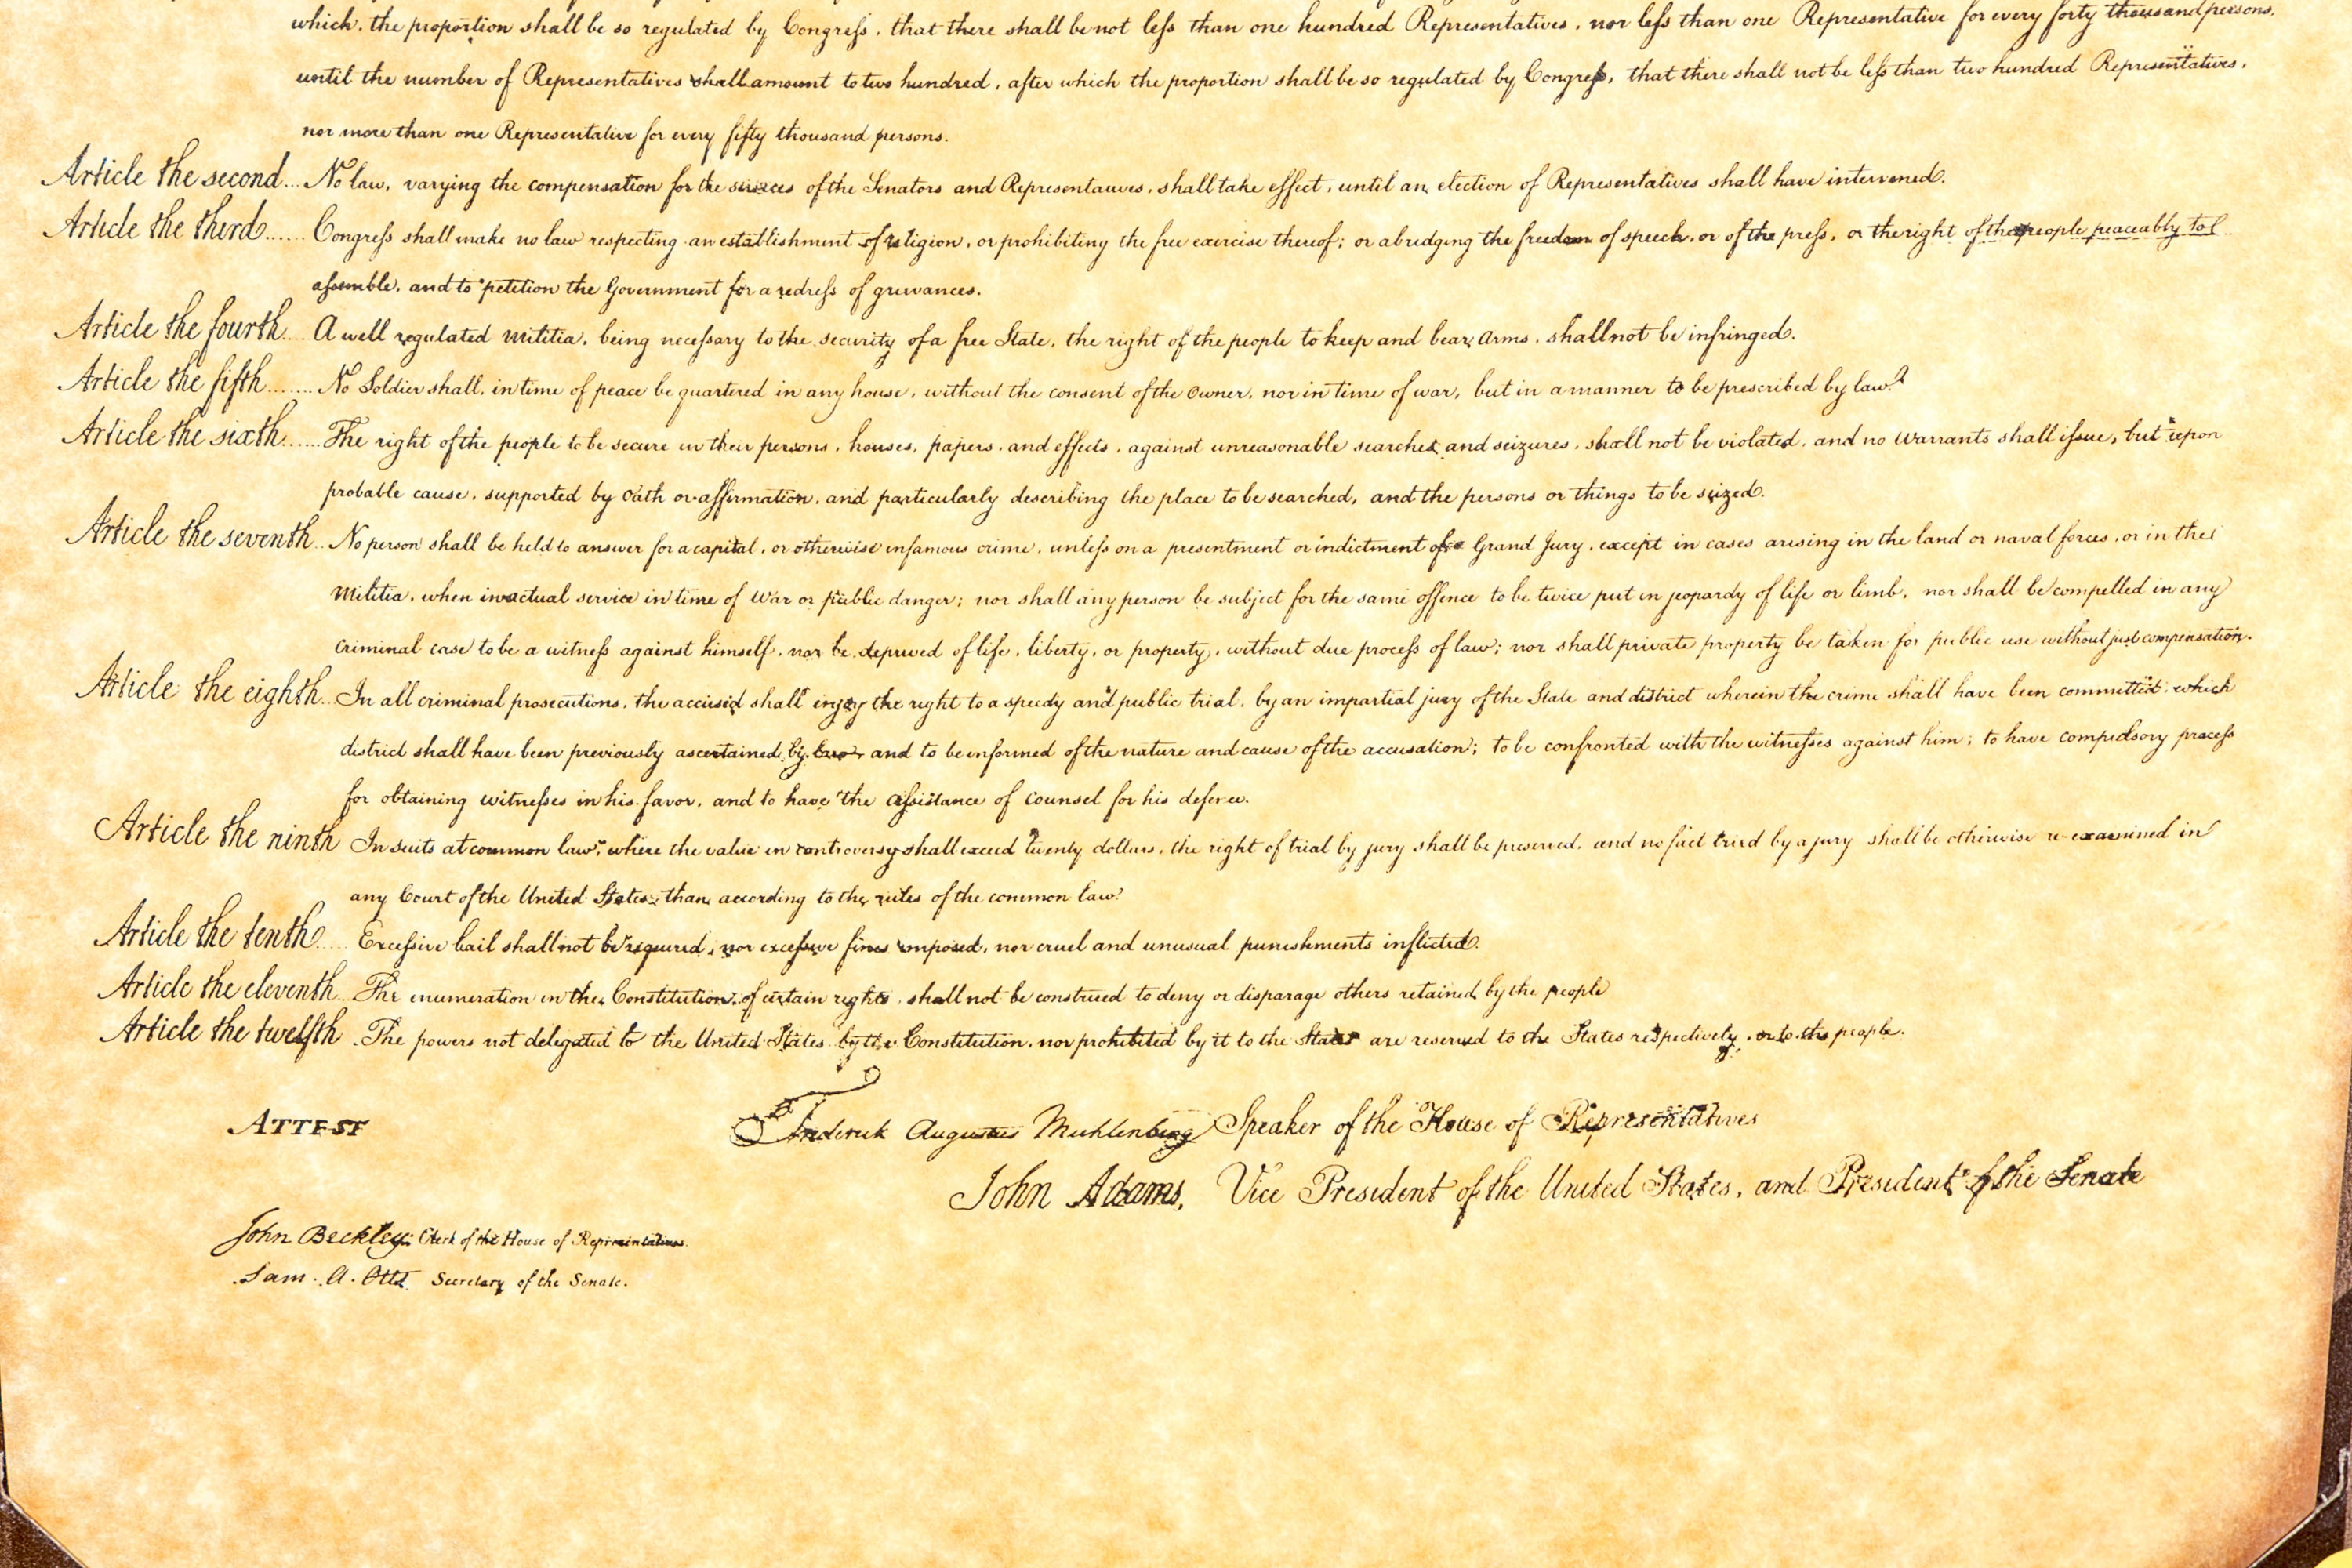 which, the proportion shall be so regulated by Congress, that there shall be not less than one hundred Representatives, nor less than one Representative for every forty thousand persons,
until the number of Representatives shall amount to two hundred, after which the proportion shall be so regulated by Congress, that there shall not be less than two hundred Representatives,
nor more than one Representative for every fifty thousand persons.
Article the second... No law, varying the compensation for the services of the Senators and Representatives, shall take effect, until an election of Representatives shall have intervened.
Article the third...... Congress shall make no law respecting an establishment of religion, or prohibiting the free exercise thereof; or abridging the freedom of speech, or of the press, or the right of the people peaceably to
assemble, and to petition the Government for a redress of grievances.
Article the fourth.... A well regulated Militia, being necessary to the security of a free State, the right of the people to keep and bear Arms, shall not be infringed.
Article the fifth....... No Soldier shall, in time of peace be quartered in any house, without the consent of the Owner, nor in time of war, but in a manner to be prescribed by law.
Article the sixth...... The right of the people to be secure in their persons, houses, papers, and effects, against unreasonable searches and seizures, shall not be violated, and no Warrants shall issue, but upon
probable cause, supported by Oath or affirmation, and particularly describing the place to be searched, and the persons or things to be seized.
Article the seventh.. No person shall be held to answer for a capital, or otherwise infamous crime, unless on a presentment or indictment of a Grand Jury, except in cases arising in the land or naval forces, or in the
Militia, when in actual service in time of War or public danger; nor shall any person be subject for the same offence to be twice put in jeopardy of life or limb, nor shall be compelled in any
criminal case to be a witness against himself, nor be deprived of life, liberty, or property, without due process of law; nor shall private property be taken for public use without just compensation.
Article the eighth... In all criminal prosecutions, the accused shall enjoy the right to a speedy and public trial, by an impartial jury of the State and district wherein the crime shall have been committed, which
district shall have been previously ascertained by law, and to be informed of the nature and cause of the accusation; to be confronted with the witnesses against him; to have compulsory process
for obtaining witnesses in his favor, and to have the assistance of counsel for his defence.
Article the ninth In suits at common law, where the value in controversy shall exceed twenty dollars, the right of trial by jury shall be preserved, and no fact tried by a jury shall be otherwise re-examined in
any Court of the United States, than according to the rules of the common law.
Article the tenth..... Excessive bail shall not be required, nor excessive fines imposed, nor cruel and unusual punishments inflicted.
Article the eleventh... The enumeration in the Constitution, of certain rights, shall not be construed to deny or disparage others retained by the people
Article the twelfth . The powers not delegated to the United States by the Constitution, nor prohibited by it to the States are reserved to the States respectively, or to the people.
ATTEST
Frederick Augustus Muhlenberg Speaker of the House of Representatives
John Adams, Vice President of the United States, and President of the Senate
John Beckley, Clerk of the House of Representatives.
Sam. A. Otis Secretary of the Senate.